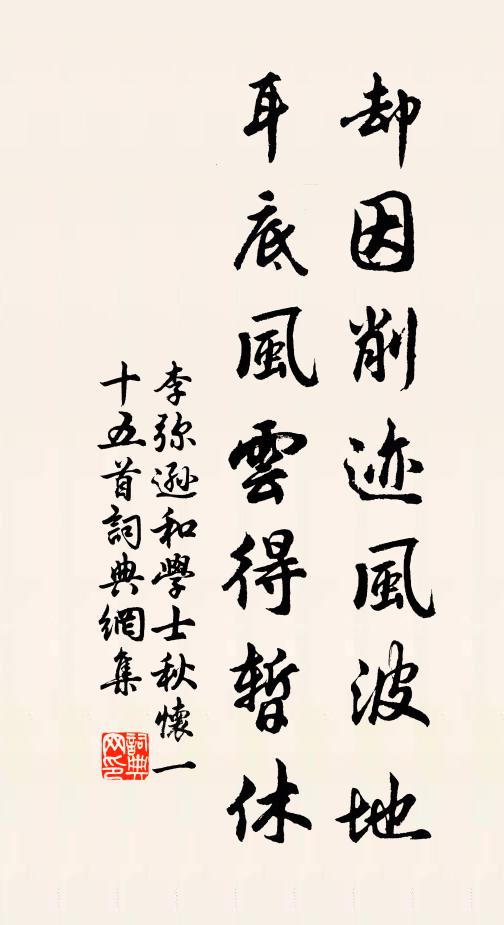 却因削迹風波地
耳底風雲得暫休
李弥遜和學士秋懷一
十五首詞典網集
詞典
网印